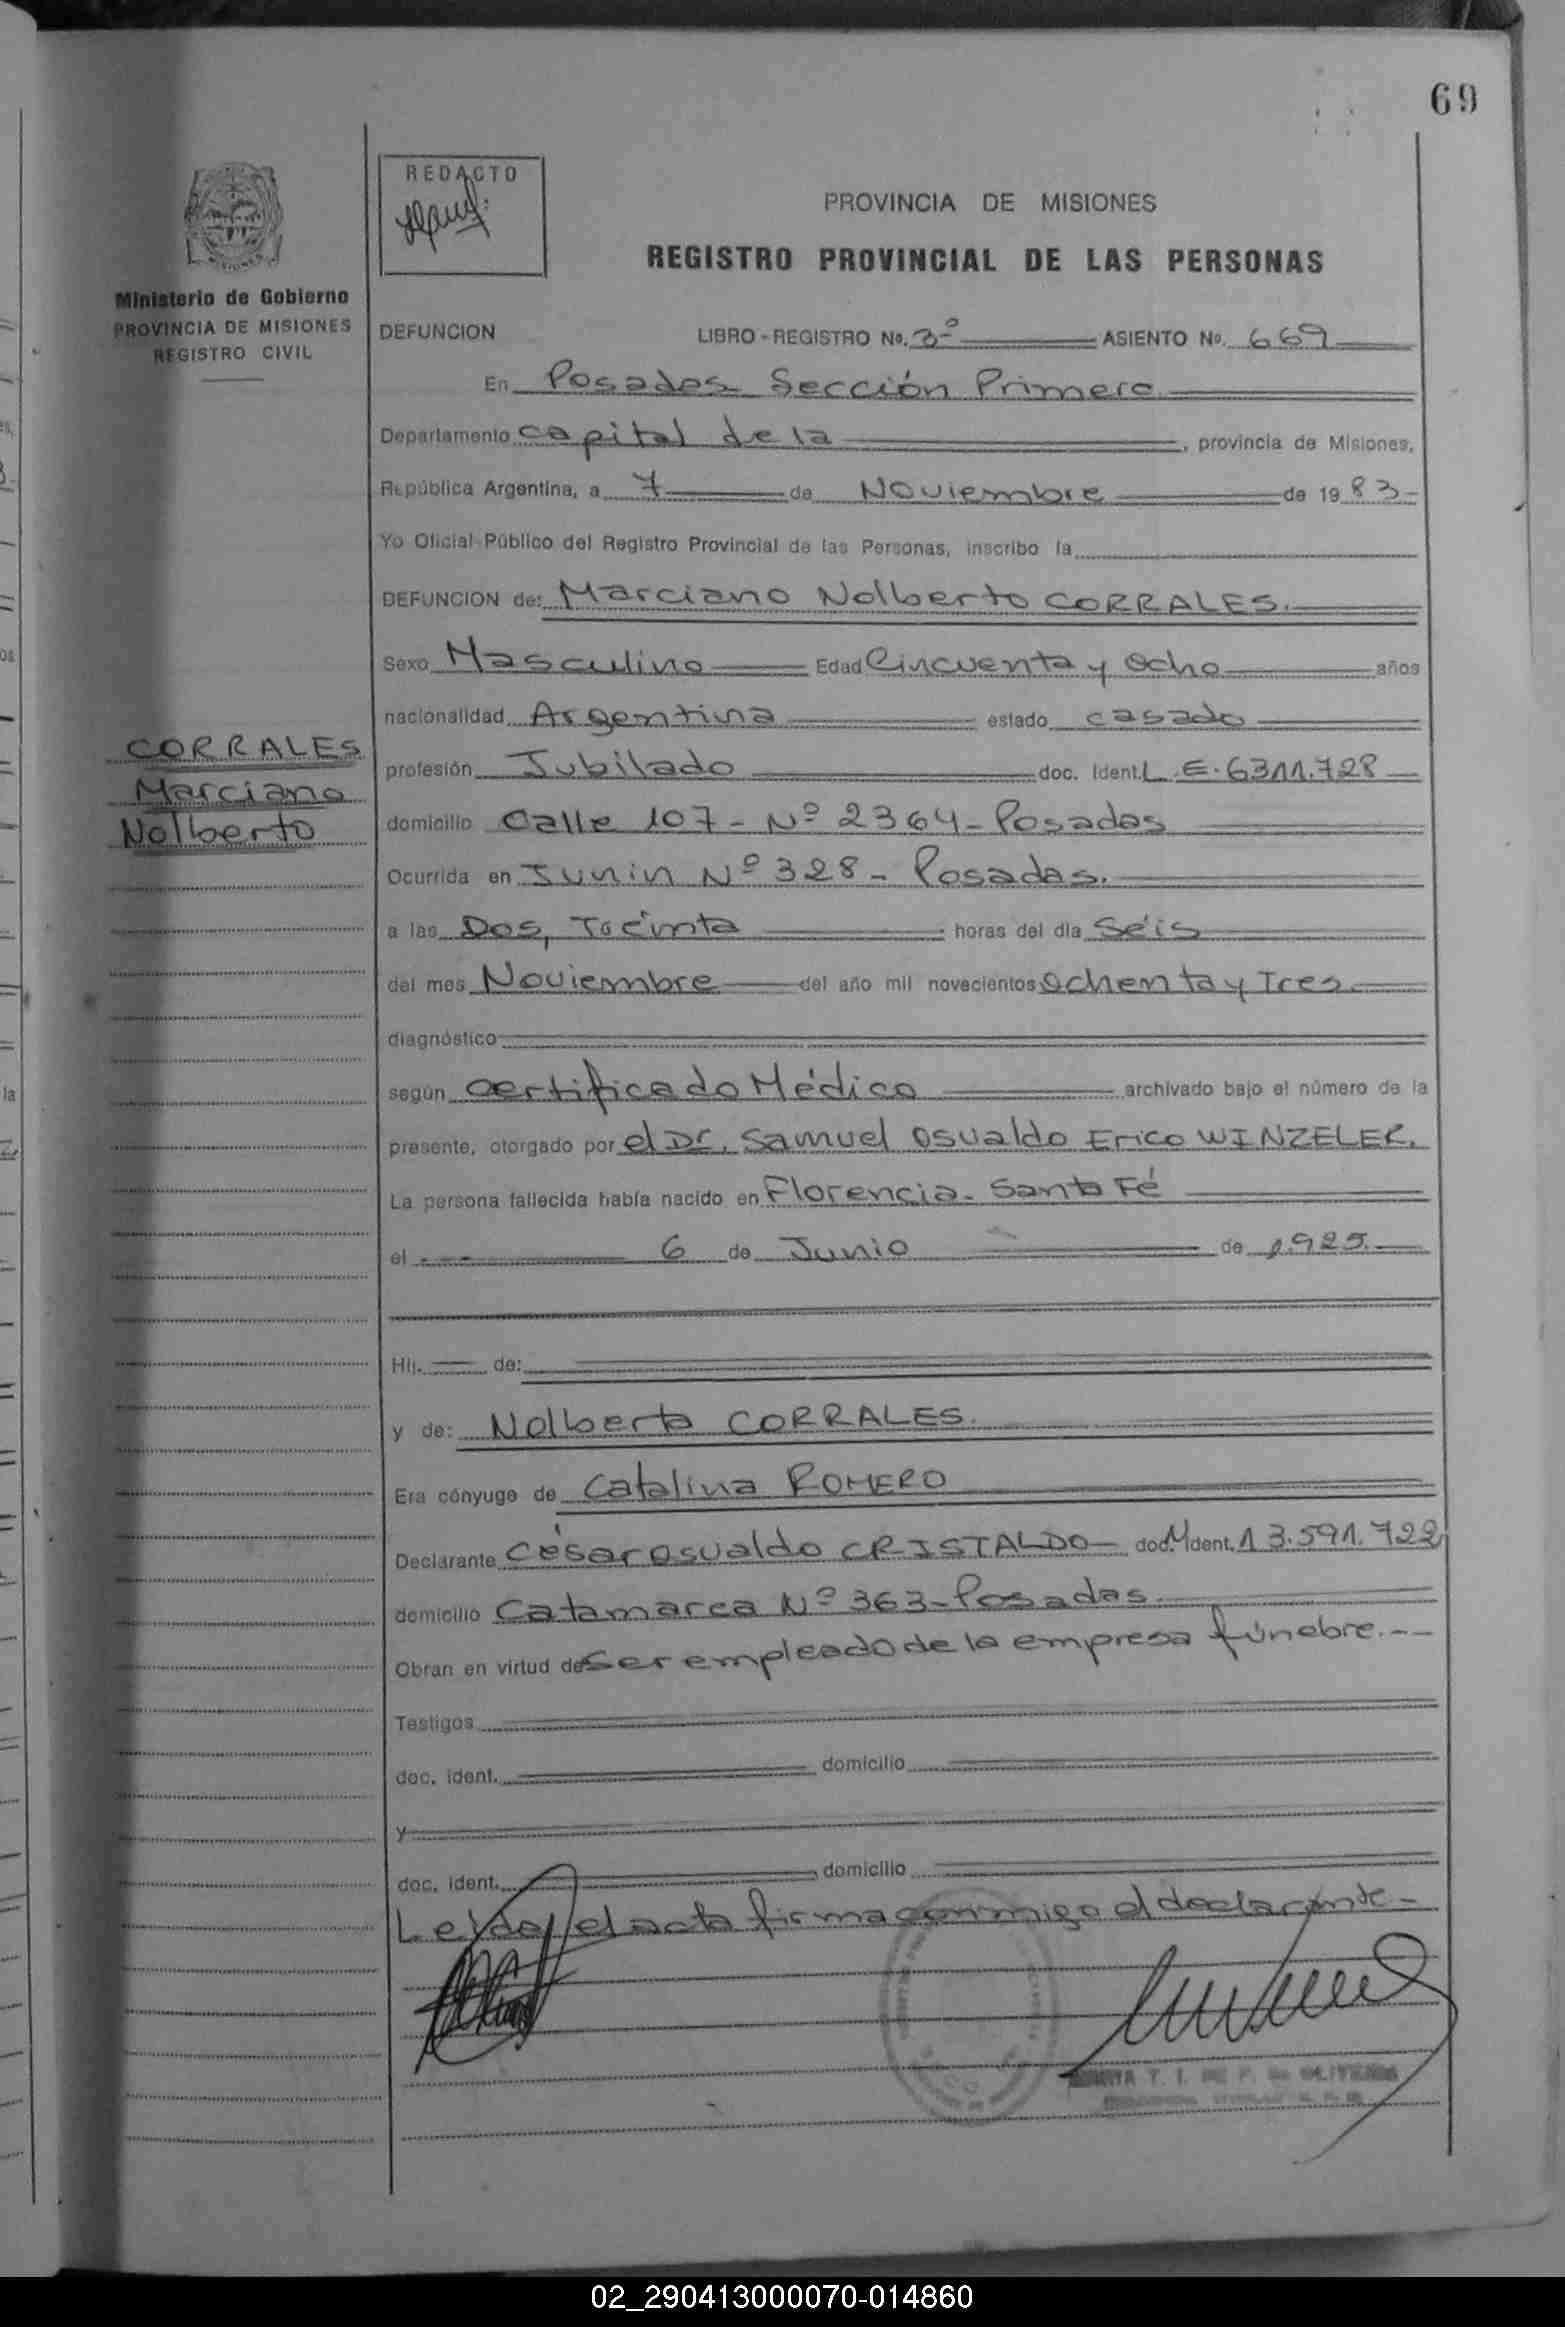 69
REDACTO
PROVINCIA DE MISIONES
REGISTRO PROVINCIAL DE LAS PERSONAS
Ministerio de Gobierno
PROVINCIA DE MISIONES
REGISTRO CIVIL
DEFUNCION LIBRO - REGISTRO No. 3º ASIENTO No. 669
En Posadas Sección Primera
Departamento capital de la , provincia de Misiones,
República Argentina, a 7 de Noviembre de 1983-
Yo Oficial Público del Registro Provincial de las Personas, inscribo la
DEFUNCION de: Marciano Nolberto CORRALES.
Sexo Masculino Edad Cincuenta y Ocho años
nacionalidad Argentina estado casado
CORRALES
Marciano
Nolberto
profesión Jubilado doc. Ident. L.E. 6311.728
domicilio Calle 107 - Nº 2364 - Posadas
Ocurrida en Junin Nº 328 - Posadas.
a las Dos, Treinta horas del día Séis
del mes Noviembre del año mil novecientos Ochenta y Tres.
diagnóstico
según certificado Médico archivado bajo el número de la
presente, otorgado por el Dr. Samuel Osvaldo Erico WINZELER.
La persona fallecida había nacido en Florencia - Santa Fé
el 6 de Junio de 1.925.
Hij. de:
y de: Nolberta CORRALES.
Era cónyuge de Catalina ROMERO
Declarante César Osvaldo CRISTALDO - doc. Ident. 13.591.722
domicilio Catamarca Nº 363 - Posadas.
Obran en virtud de Ser empleado de la empresa fúnebre.--
Testigos
doc. ident. domicilio
y
doc. ident. domicilio
Leída el acta firma conmigo el declarante -
02_290413000070-014860